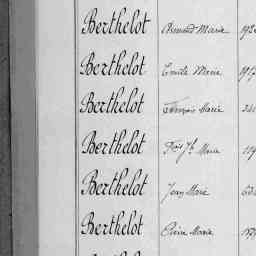 Berthelot Armand Marie
Berthelot Emile Marie
Berthelot François Marie
Berthelot Fois Jh Marie
Berthelot Jean Marie
Berthelot Pierre Marie